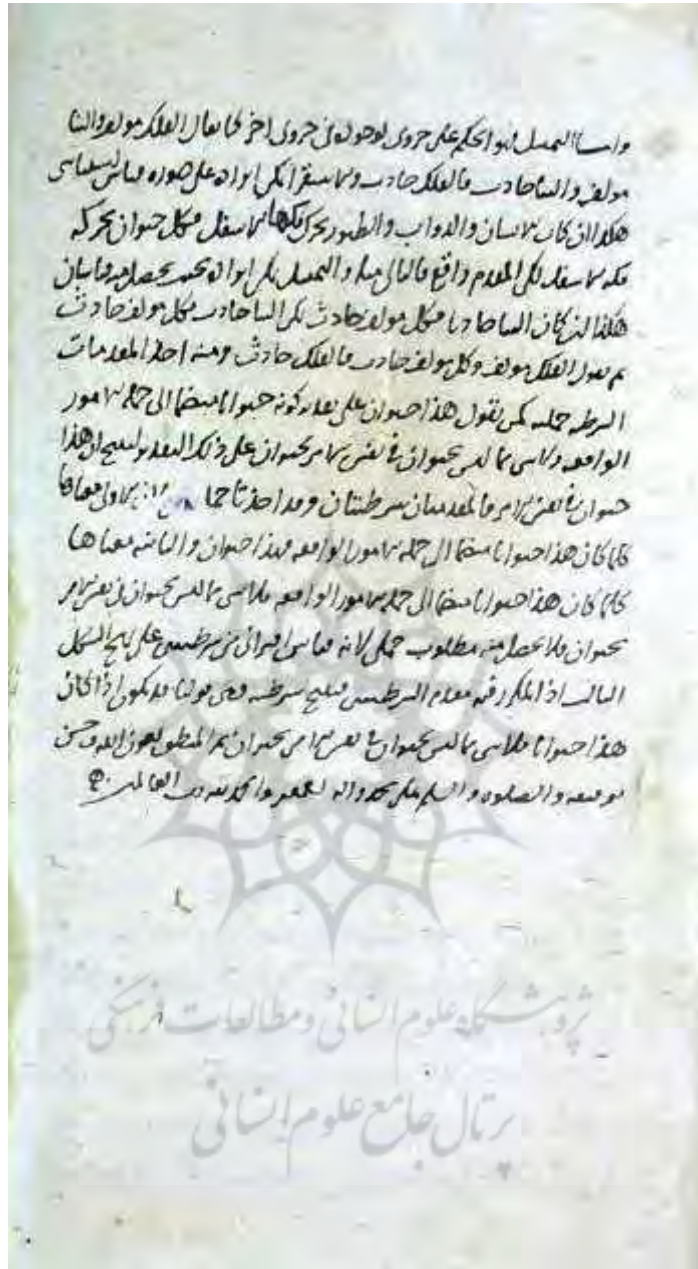 واما التمثيل فهو الحكم على جزوى لوجوده فى جزوى اخر كما يقال الفلك مولف والبنا
مولف والبنا حادث فالفلك حادث والاستقرا يمكن ايراده على صورة قياس استثنائى
هكذا ان كان الانسان والدواب والطيور يحرك فكها الاسفل فكل حيوان يحرك
فكه الاسفل لكن المقدم واقع فالتالى مثله والتمثيل يمكن ايراده بحيث يحصل منه قياسان
هكذا ان كان البنا حادثا فكل مولف حادث لكن البنا حادث فكل مولف حادث
ثم نقول الفلك مولف وكل مولف حادث فالفلك حادث ومنه اخذ المقدمات
الشرطية حملية كمن يقول هذا حيوان على تقدير كونه حيوانا منضما الى جملة الامور
الواقعة ولا شى مما ليس بحيوان فى نفس الامر بحيوان على ذلك التقدير لينتج ان هذا
حيوان فى نفس الامر فالمقدمتان شرطيتان وقد اخذتا حمليتين لان الاولى معناها
كلما كان هذا حيوانا منضما الى جملة الامور الواقعة فهذا حيوان والثانية معناها
كلما كان هذا حيوانا منضما الى جملة الامور الواقعة فلا شى مما ليس بحيوان فى نفس الامر
بحيوان فلا يحصل منه مطلوب حملى لانه قياس اقترانى من شرطيتين على نهج الشكل
الثالث اذ المكرر فيه مقدم الشرطيتين فينتج شرطية وهى قولنا قد يكون اذا كان
هذا حيوانا فلا شى مما ليس بحيوان فى نفس الامر بحيوان تم المنطق بعون الله وحسن
توفيقه والصلوة والسلم على محمد واله اجمعين والحمد لله رب العالمين
پژوهشگاه علوم انسانی و مطالعات فرهنگی
پرتال جامع علوم انسانی